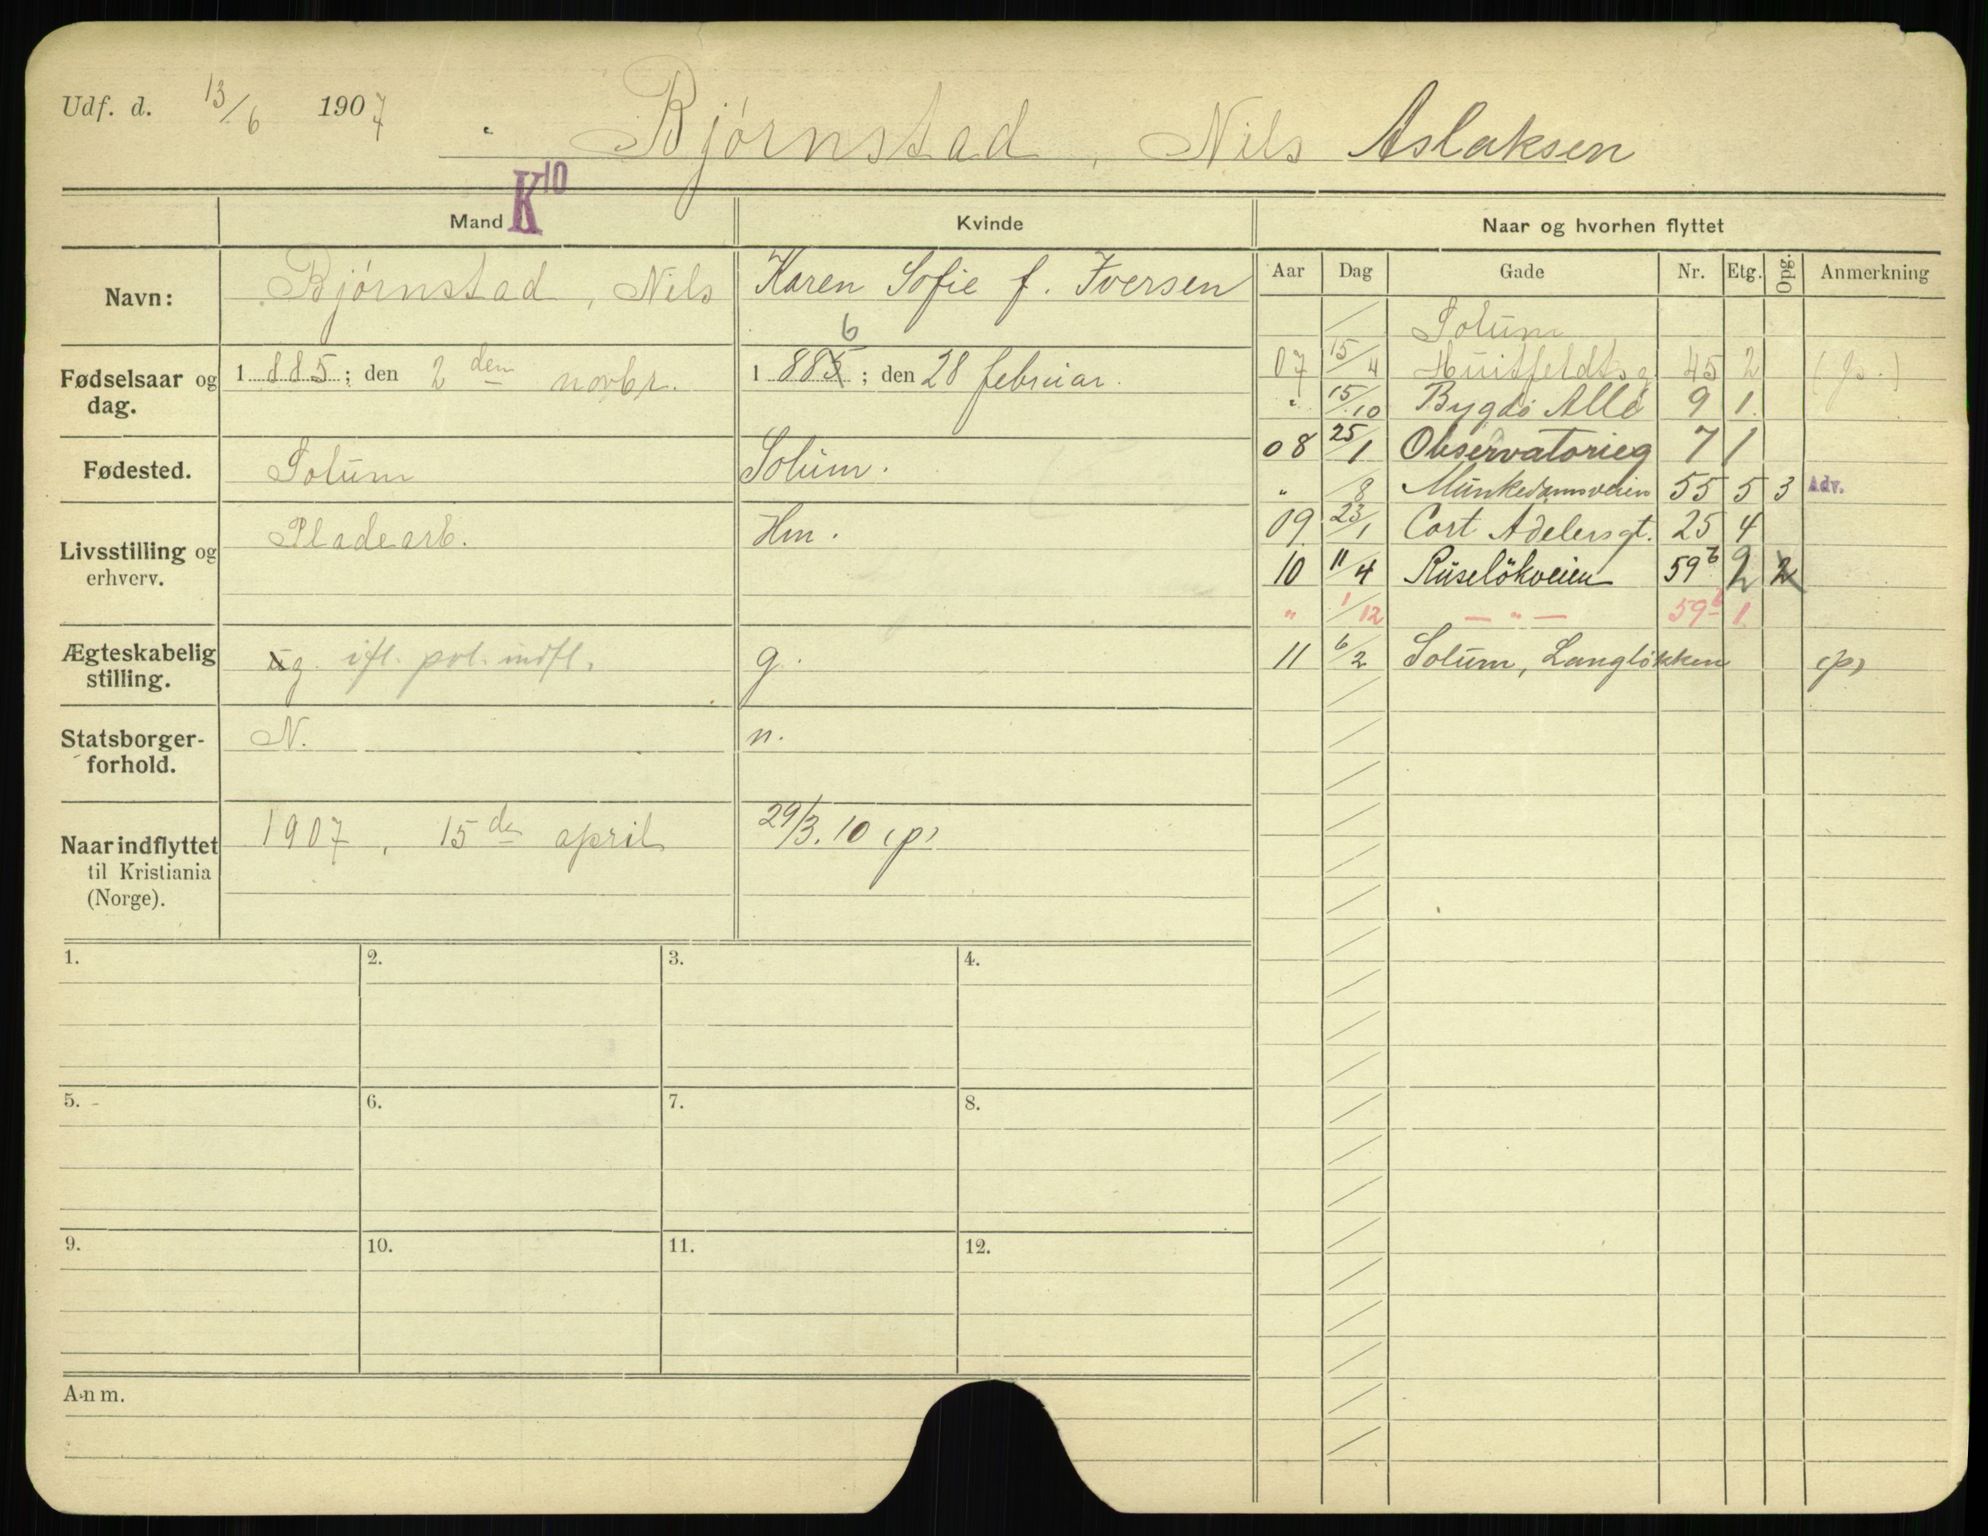 Udf. d. 13/6 1907
Bjørnstad, Nils Aslaksen
K10
Mand Kvinde Naar og hvorhen flyttet
Aar Dag Gade Nr. Etg. Opg. Anmerkning
Navn: Bjørnstad, Nils Karen Sofie f. Iversen
Solum
Fødselsaar og dag. 1885; den 2den novbr. 1885 6; den 28 februar.
07 15/4 Huitfeldtsg. 45 2
" 15/10 Bygdø Allé 9 1.
Fødested. Solum Solum.
08 25/1 Observatorieg 7 1
" /8 Munkedamsveien 55 5 3 Adv.
Livsstilling og erhverv. Pladearb. Hm.
09 23/1 Cort Adelersgt. 25 4
10 11/4 Ruselökveien 59b 2 2
" 1/12 — " — 59b 1
Ægteskabelig stilling. ug. ifl. pol. indfl. g.
11 6/2 Solum, Langlökken (p)
Statsborgerforhold. N. n.
Naar indflyttet til Kristiania (Norge). 1907, 15de april 29/3.10 (p)
1. 2. 3. 4.
5. 6. 7. 8.
9. 10. 11. 12.
Anm.